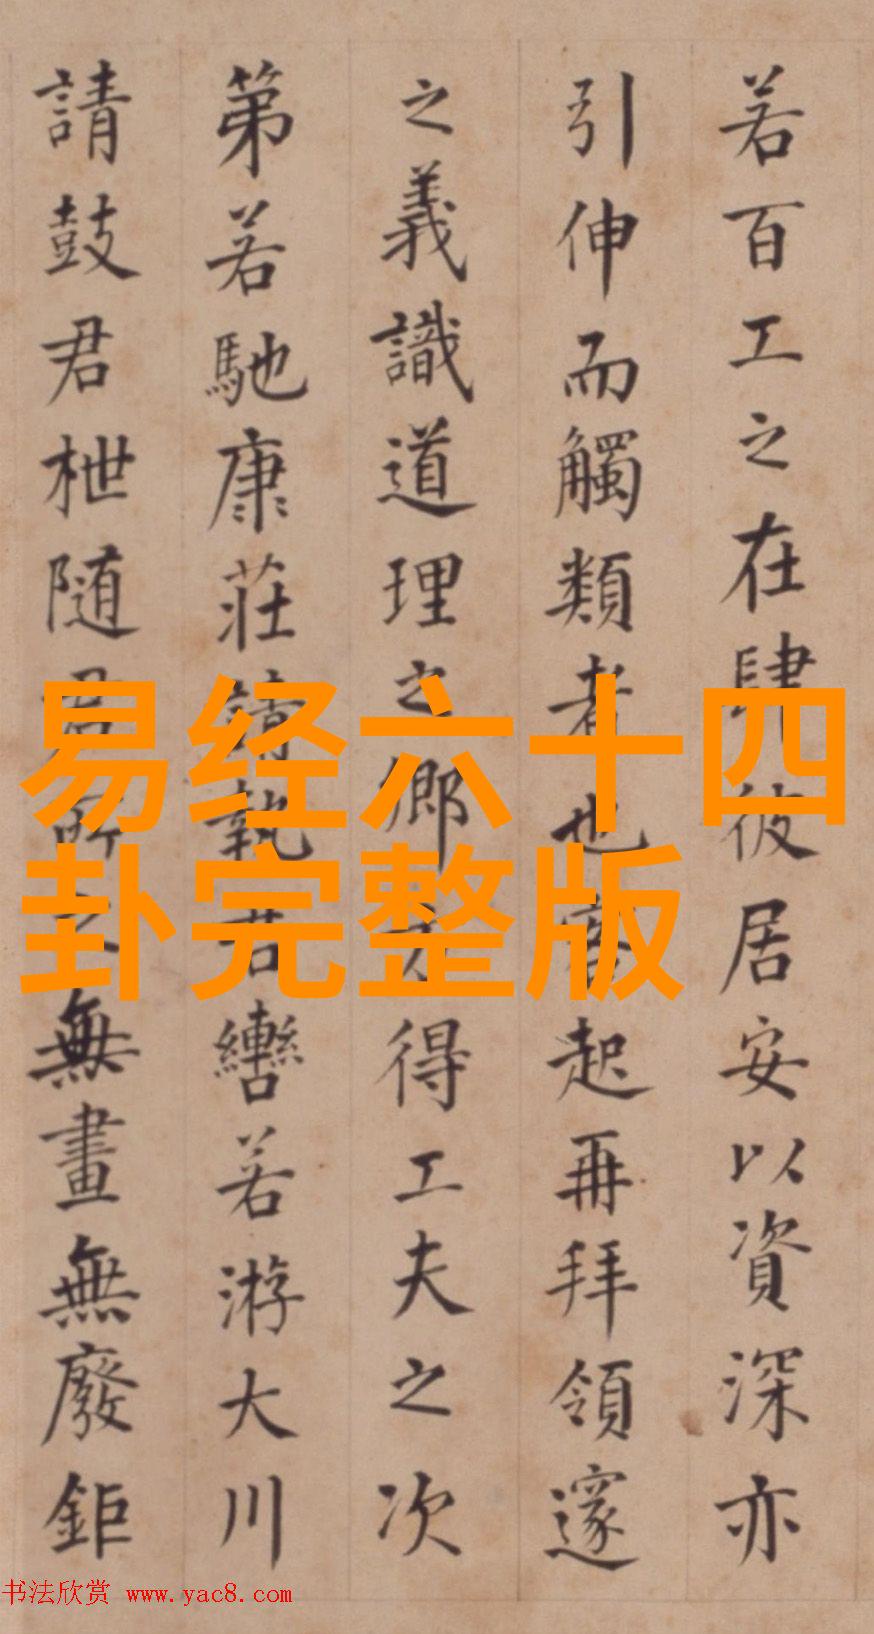 若百工之在肆彼居安以資深亦
引伸而觸類者也客起再拜領邃
之義識道理之鄉方得工夫之次
第若馳康莊請執君轡若游大川
請鼓君枻随君所之無畫無廢鉅
易经六十四
卦完整版
书法欣赏 www.yac8.com